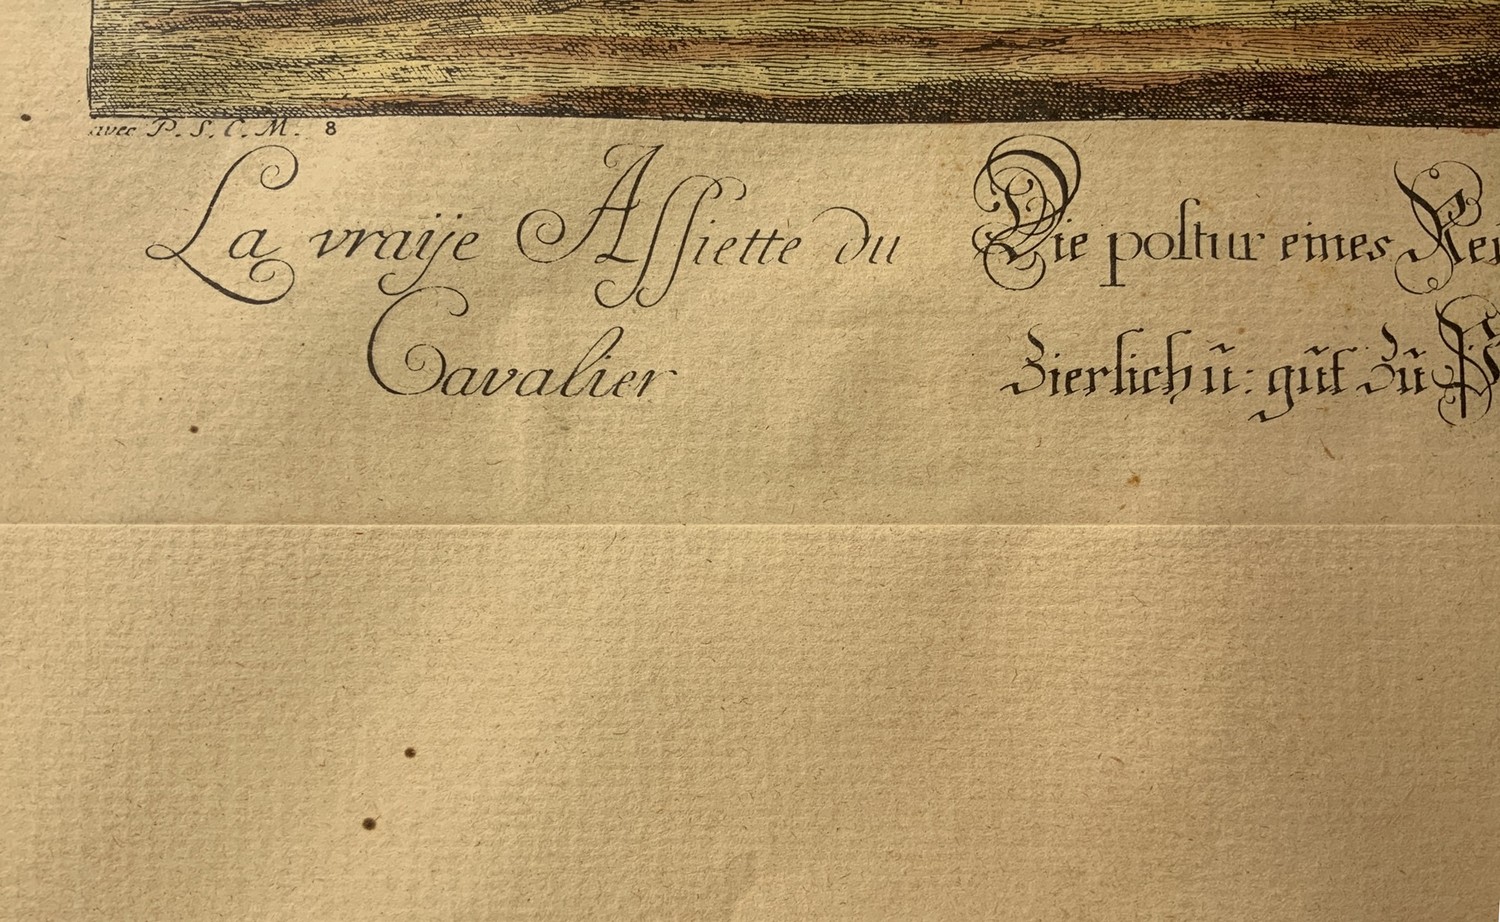 avec P. S. C. M. 8
La vraÿe Assiette du
Cavalier
Die postur eines Rei
Zierlich ū: gūt Zū P